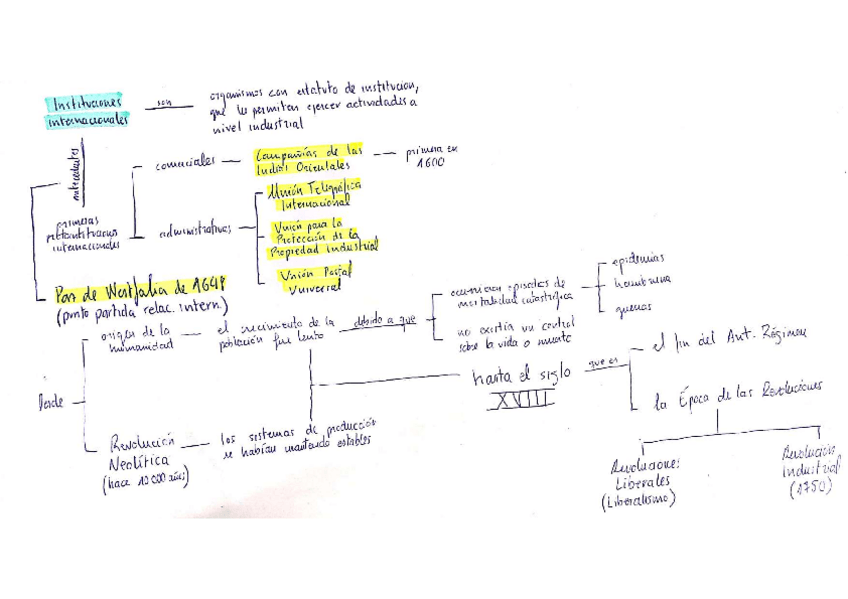 Instituciones
internacionales
son
organismos con estatuto de institución,
que les permiten ejercer actividades a
nivel industrial
antecedentes
primeras
internacionales
comerciales
Compañías de las
Indias Orientales
primera en
1600
administrativas
Unión Telegráfica
Internacional
Unión para la
Protección de la
Propiedad Industrial
Unión Postal
Universal
Paz de Westfalia de 1648
(punto partida relac. intern.)
Desde
origen de la
humanidad
el crecimiento de la
población fue lento
debido a que
ocurrieron episodios de
mortalidad catastrófica
epidemias
hambruna
guerras
no existía un control
sobre la vida o muerte
hasta el siglo
XVIII
que es
el fin del Ant. Régimen
la Época de las Revoluciones
Revoluciones
Liberales
(Liberalismo)
Revolución
Industrial
(1750)
Revolución
Neolítica
(hace 10 000 años)
los sistemas de producción
se habían mantenido estables